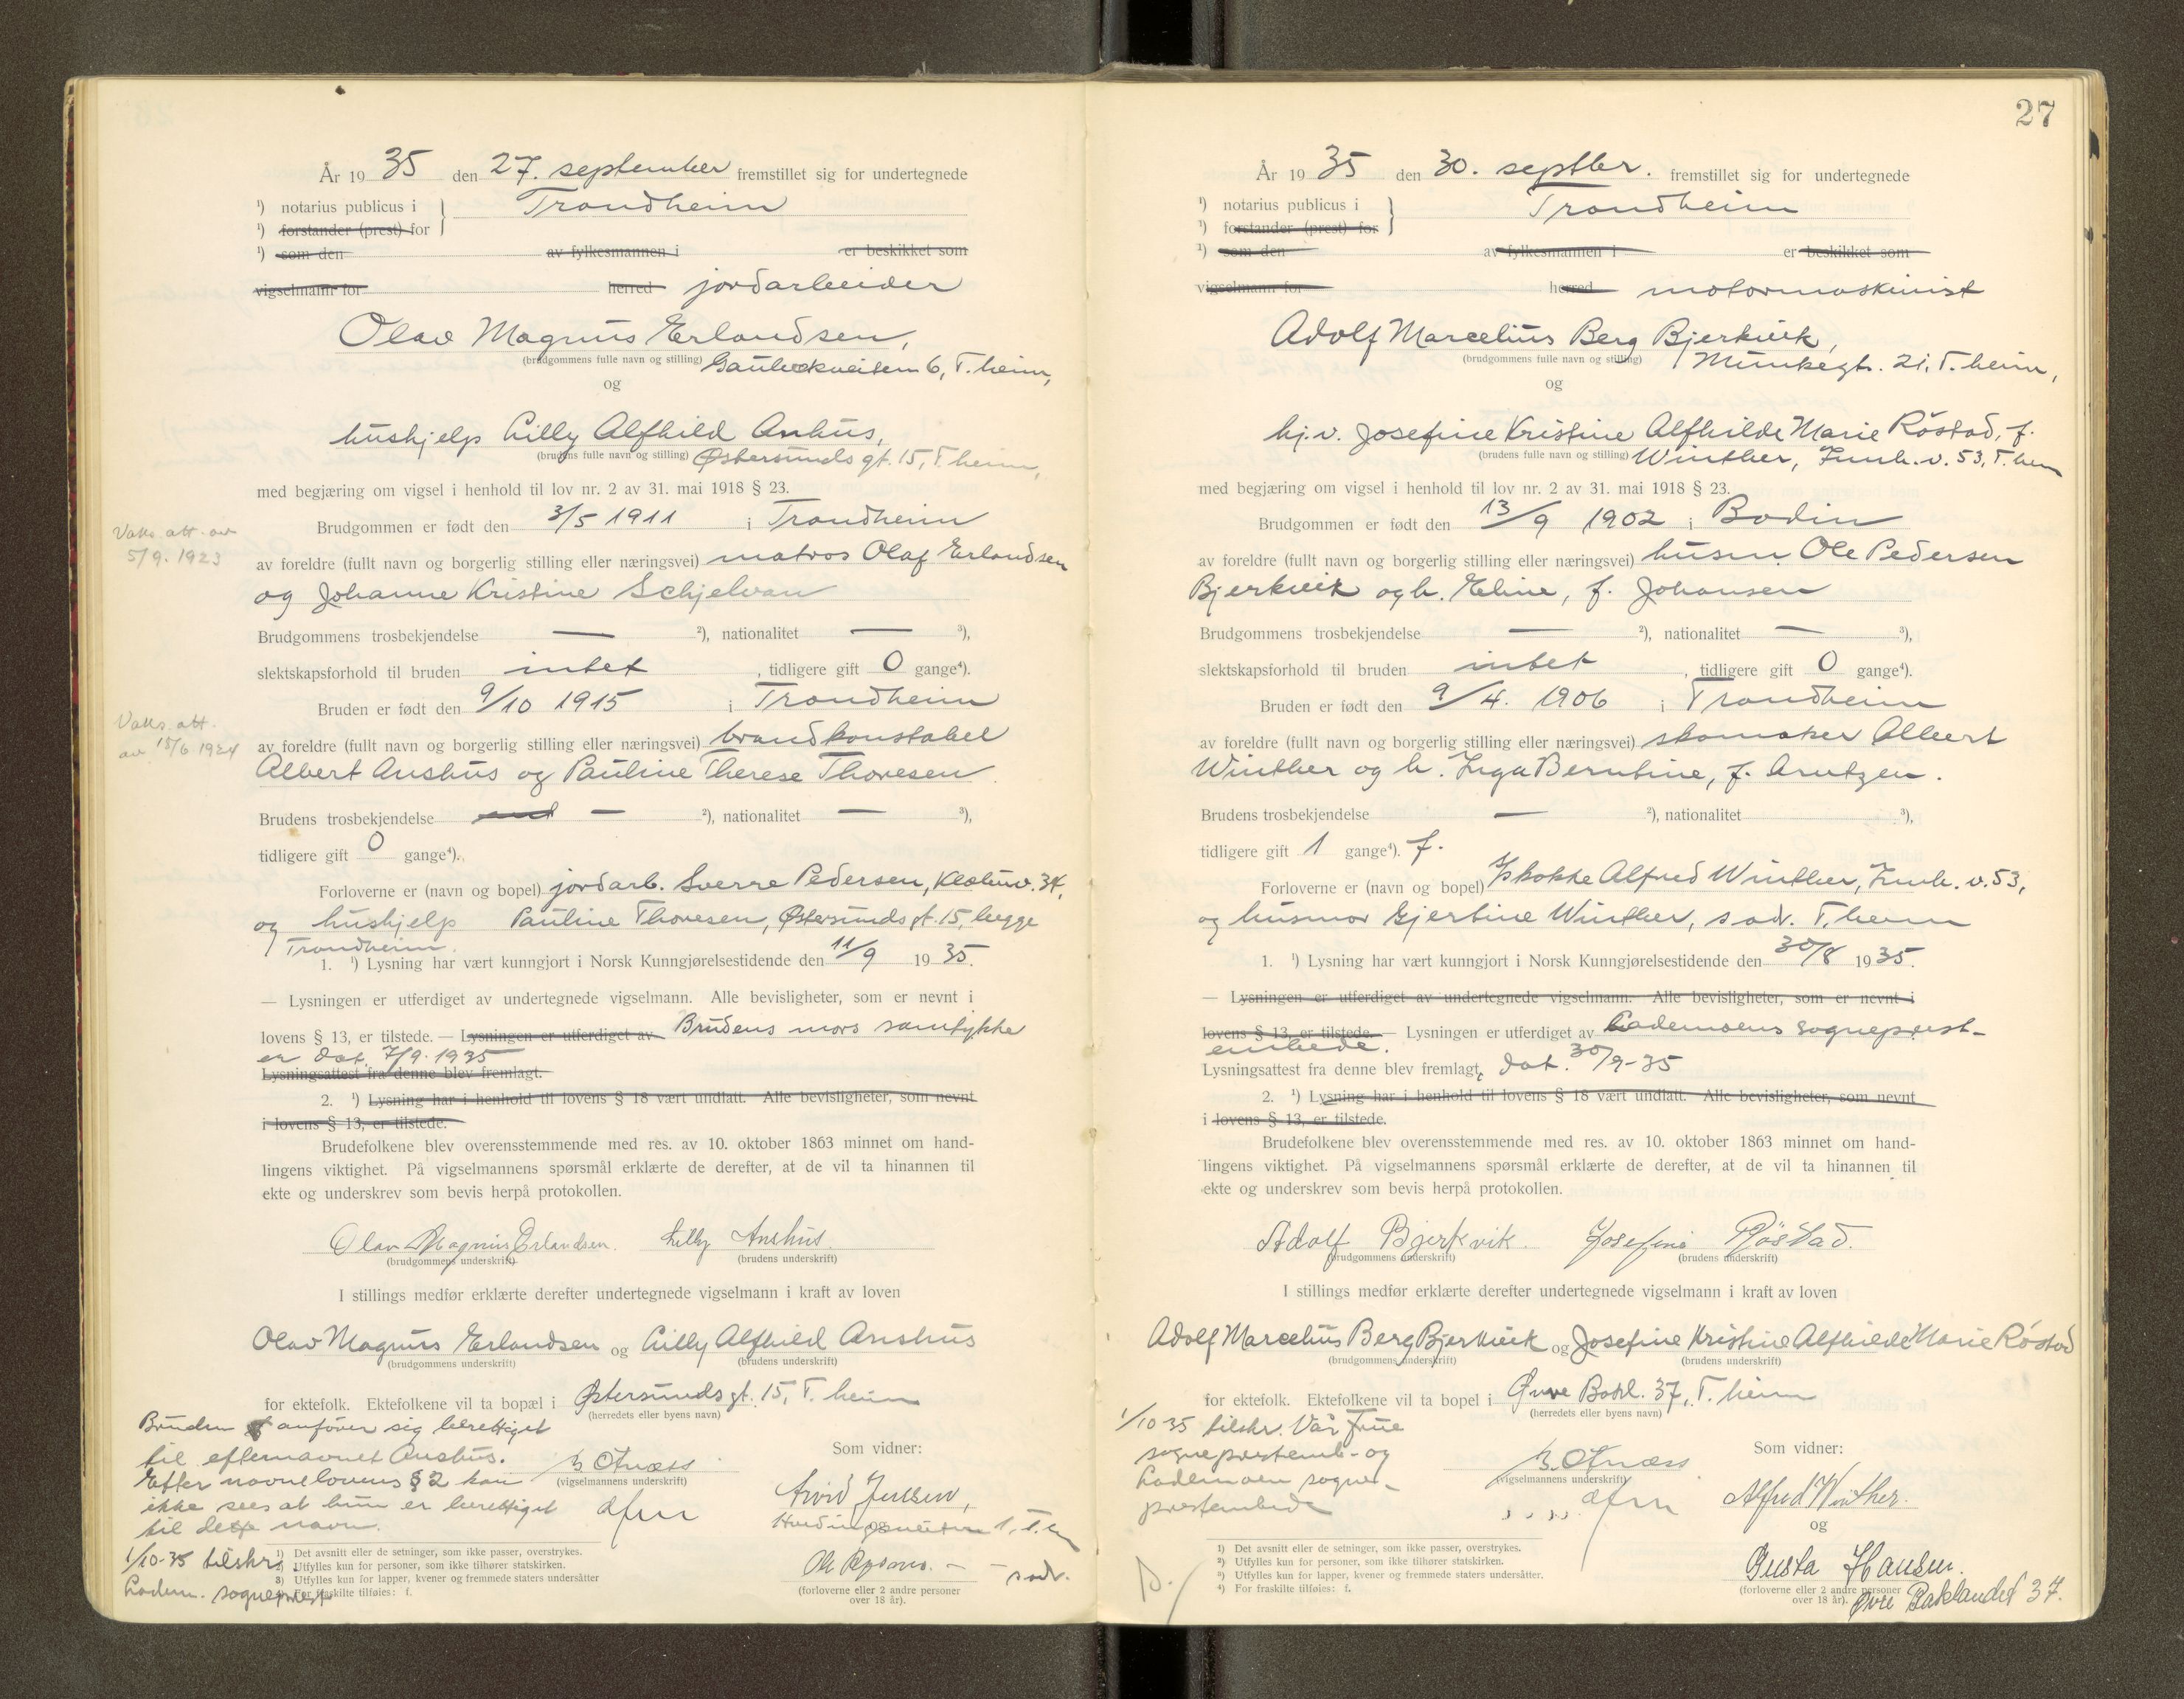 År 1935 den 27. september fremstillet sig for undertegnede
¹) notarius publicus i } Trondheim
¹) forstander (prest) for
¹) som den av fylkesmannen i er beskikket som
vigselmann for herred jordarbeider
Olav Magnus Erlandsen,
(brudgommens fulle navn og stilling) 6, T.heim,
og
hushjelp Lilly Alfhild Anhus,
(brudens fulle navn og stilling) Østersunds gt. 15, T.heim,
med begjæring om vigsel i henhold til lov nr. 2 av 31. mai 1918 § 23.
Brudgommen er født den 3/5 1911 i Trondheim
Vaks. att. av
5/9. 1923
av foreldre (fullt navn og borgerlig stilling eller næringsvei) matros Olaf Erlandsen
og Johanne Kristine Schjelvan
Brudgommens trosbekjendelse — ²), nationalitet — ³),
slektskapsforhold til bruden intet, tidligere gift 0 gange⁴).
Bruden er født den 9/10 1915 i Trondheim
Vaks. att.
av 15/6 1924
av foreldre (fullt navn og borgerlig stilling eller næringsvei) brandkonstabel
Albert Anshus og Pauline Therese Thoresen
Brudens trosbekjendelse — ²), nationalitet — ³),
tidligere gift 0 gange⁴).
Forloverne er (navn og bopel) jordarb. Sverre Pedersen, 34,
og hushjelp Pauline Thoresen, Østersunds gt. 15, begge
Trondheim.
1. ¹) Lysning har vært kunngjort i Norsk Kunngjørelsestidende den 11/9 1935.
— Lysningen er utferdiget av undertegnede vigselmann. Alle bevisligheter, som er nevnt i
lovens § 13, er tilstede. — Lysningen er utferdiget av Brudens mors samtykke
er dat. 7/9. 1935
Lysningsattest fra denne blev fremlagt.
2. ¹) Lysning har i henhold til lovens § 18 vært undlatt. Alle bevisligheter, som nevnt
i lovens § 13, er tilstede.
Brudefolkene blev overensstemmende med res. av 10. oktober 1863 minnet om hand-
lingens viktighet. På vigselmannens spørsmål erklærte de derefter, at de vil ta hinannen til
ekte og underskrev som bevis herpå protokollen.
Olav Magnus Erlandsen. Lilly Anshus.
(brudgommens underskrift) (brudens underskrift)
I stillings medfør erklærte derefter undertegnede vigselmann i kraft av loven
Olav Magnus Erlandsen og Lilly Alfhild Anshus
(brudgommens underskrift) (brudens underskrift)
for ektefolk. Ektefolkene vil ta bopæl i Østersunds gt. 15, T.heim
(herredets eller byens navn)
Bruden anfører sig berettiget
til efternavnet Anshus.
Efter navnelovens § 2 kan
ikke sees at hun er berettiget
til dette navn.
1/10-35 tilskr.
Ladem. sogneprest
(vigselmannens underskrift)
Som vidner:
Arvid Jensen,
1, T.hm
og
Ole — sadr.
(forloverne eller 2 andre personer
over 18 år).
¹) Det avsnitt eller de setninger, som ikke passer, overstrykes.
²) Utfylles kun for personer, som ikke tilhører statskirken.
3) Utfylles kun for lapper, kvener og fremmede staters undersåtter
⁴) For fraskilte tilføies: f.
27
År 1935 den 30. septbr. fremstillet sig for undertegnede
¹) notarius publicus i } Trondheim
¹) forstander (prest) for
¹) som den av fylkesmannen i er beskikket som
vigselmann for herred motormaskinist
Adolf Marcelius Berg Bjerkvik,
(brudgommens fulle navn og stilling) Munkegt. 21, T.heim,
og
hj.v. Josefine Kristine Alfhilde Marie Röstad, f.
(brudens fulle navn og stilling) Winther, Innh.v. 53, T.heim
med begjæring om vigsel i henhold til lov nr. 2 av 31. mai 1918 § 23.
Brudgommen er født den 13/9 1902 i Bodin
av foreldre (fullt navn og borgerlig stilling eller næringsvei) husm. Ole Pedersen
Bjerkvik og h. Eline, f. Johansen
Brudgommens trosbekjendelse — ²), nationalitet — ³),
slektskapsforhold til bruden intet, tidligere gift 0 gange⁴).
Bruden er født den 9/4. 1906 i Trondheim
av foreldre (fullt navn og borgerlig stilling eller næringsvei) skomaker Albert
Winther og h. Inga Berntine, f. Arntzen.
Brudens trosbekjendelse — ²), nationalitet ³),
tidligere gift 1 gange⁴). f.
Forloverne er (navn og bopel) Alfred Winther, Innh.v. 53,
og husmor Gjertine Winther, s adr. T.heim
1. ¹) Lysning har vært kunngjort i Norsk Kunngjørelsestidende den 30/8 1935.
— Lysningen er utferdiget av undertegnede vigselmann. Alle bevisligheter, som er nevnt i
lovens § 13, er tilstede. — Lysningen er utferdiget av Lademoens sogneprest-
embede.
Lysningsattest fra denne blev fremlagt, dat. 30/9-35
2. ¹) Lysning har i henhold til lovens § 18 vært undlatt. Alle bevisligheter, som nevnt
i lovens § 13, er tilstede.
Brudefolkene blev overensstemmende med res. av 10. oktober 1863 minnet om hand-
lingens viktighet. På vigselmannens spørsmål erklærte de derefter, at de vil ta hinannen til
ekte og underskrev som bevis herpå protokollen.
Adolf Bjerkvik. Josefine Röstad.
(brudgommens underskrift) (brudens underskrift)
I stillings medfør erklærte derefter undertegnede vigselmann i kraft av loven
Adolf Marcelius Berg Bjerkvik og Josefine Kristine Alfhilde Marie Röstad
(brudgommens underskrift) (brudens underskrift)
for ektefolk. Ektefolkene vil ta bopel i Øvre Bakl. 37, T.heim
(herredets eller byens navn)
1/10 35 tilskr. Vår Frue
sogneprestemb- og
Lademoen sogne-
prestembede
(vigselmannens underskrift)
Som vidner:
Alfred Winther.
og
Gusta Hansen.
(forloverne eller 2 andre personer
over 18 år). Øvre Baklandet 37.
¹) Det avsnitt eller de setninger, som ikke passer, overstrykes.
²) Utfylles kun for personer, som ikke tilhører statskirken.
³) Utfylles kun for lapper, kvener og fremmede staters undersåtter.
⁴) For fraskilte tilføies: f.